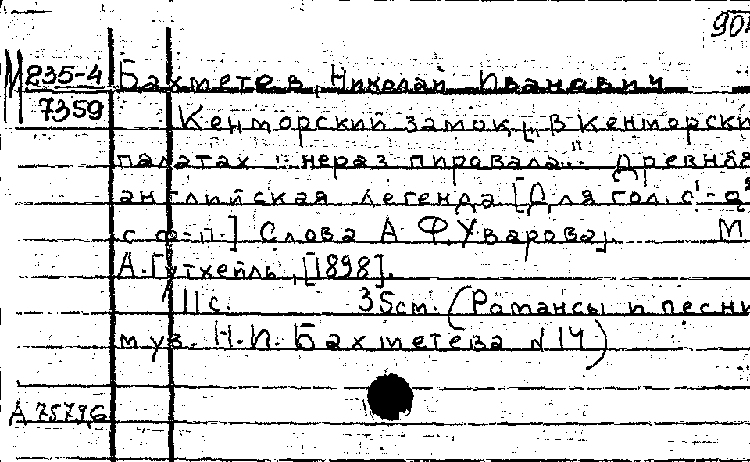 90
М 235-4 Бахметев, Николай Иванович
7359 Кенторский замок. [„В Кенторски
палатах" нераз пировала..." Древняя
английская легенда [Для гол. c¹-g²
с ф-п.] Слова А Ф. Уварова]. М
А. Гутхейль, [1898].
11 с. 35см. (Романсы и песни
муз. Н. И. Бахметева N 14)
А 75796